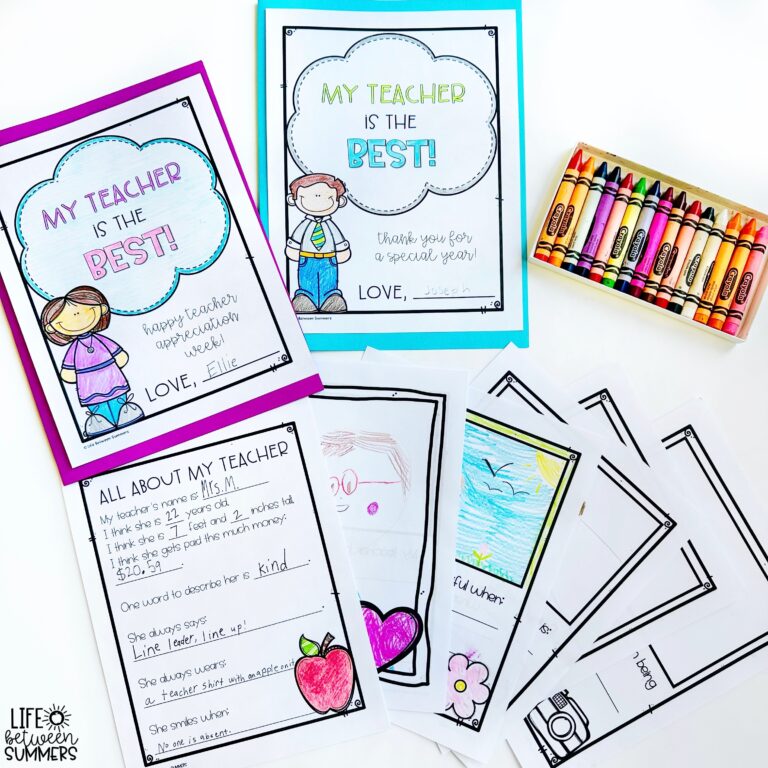 MY TEACHER
IS THE
BEST!
happy teacher
appreciation
week!
LOVE, Ellie
© Life Between Summers
MY TEACHER
IS THE
BEST!
thank you for
a special year!
LOVE, Joseph
Between Summers
Crayola
ALL ABOUT MY TEACHER
My teacher's name is: Mrs. M.
I think she is 22 years old.
I think she is 7 feet and 2 inches tall.
I think she gets paid this much money:
$20.59
One word to describe her is kind
She always says:
Line leader, line up!
She always wears:
a teacher shirt with an apple on it
She smiles when:
No one is absent.
ful when:
is:
being
LIFE
between
SUMMERS